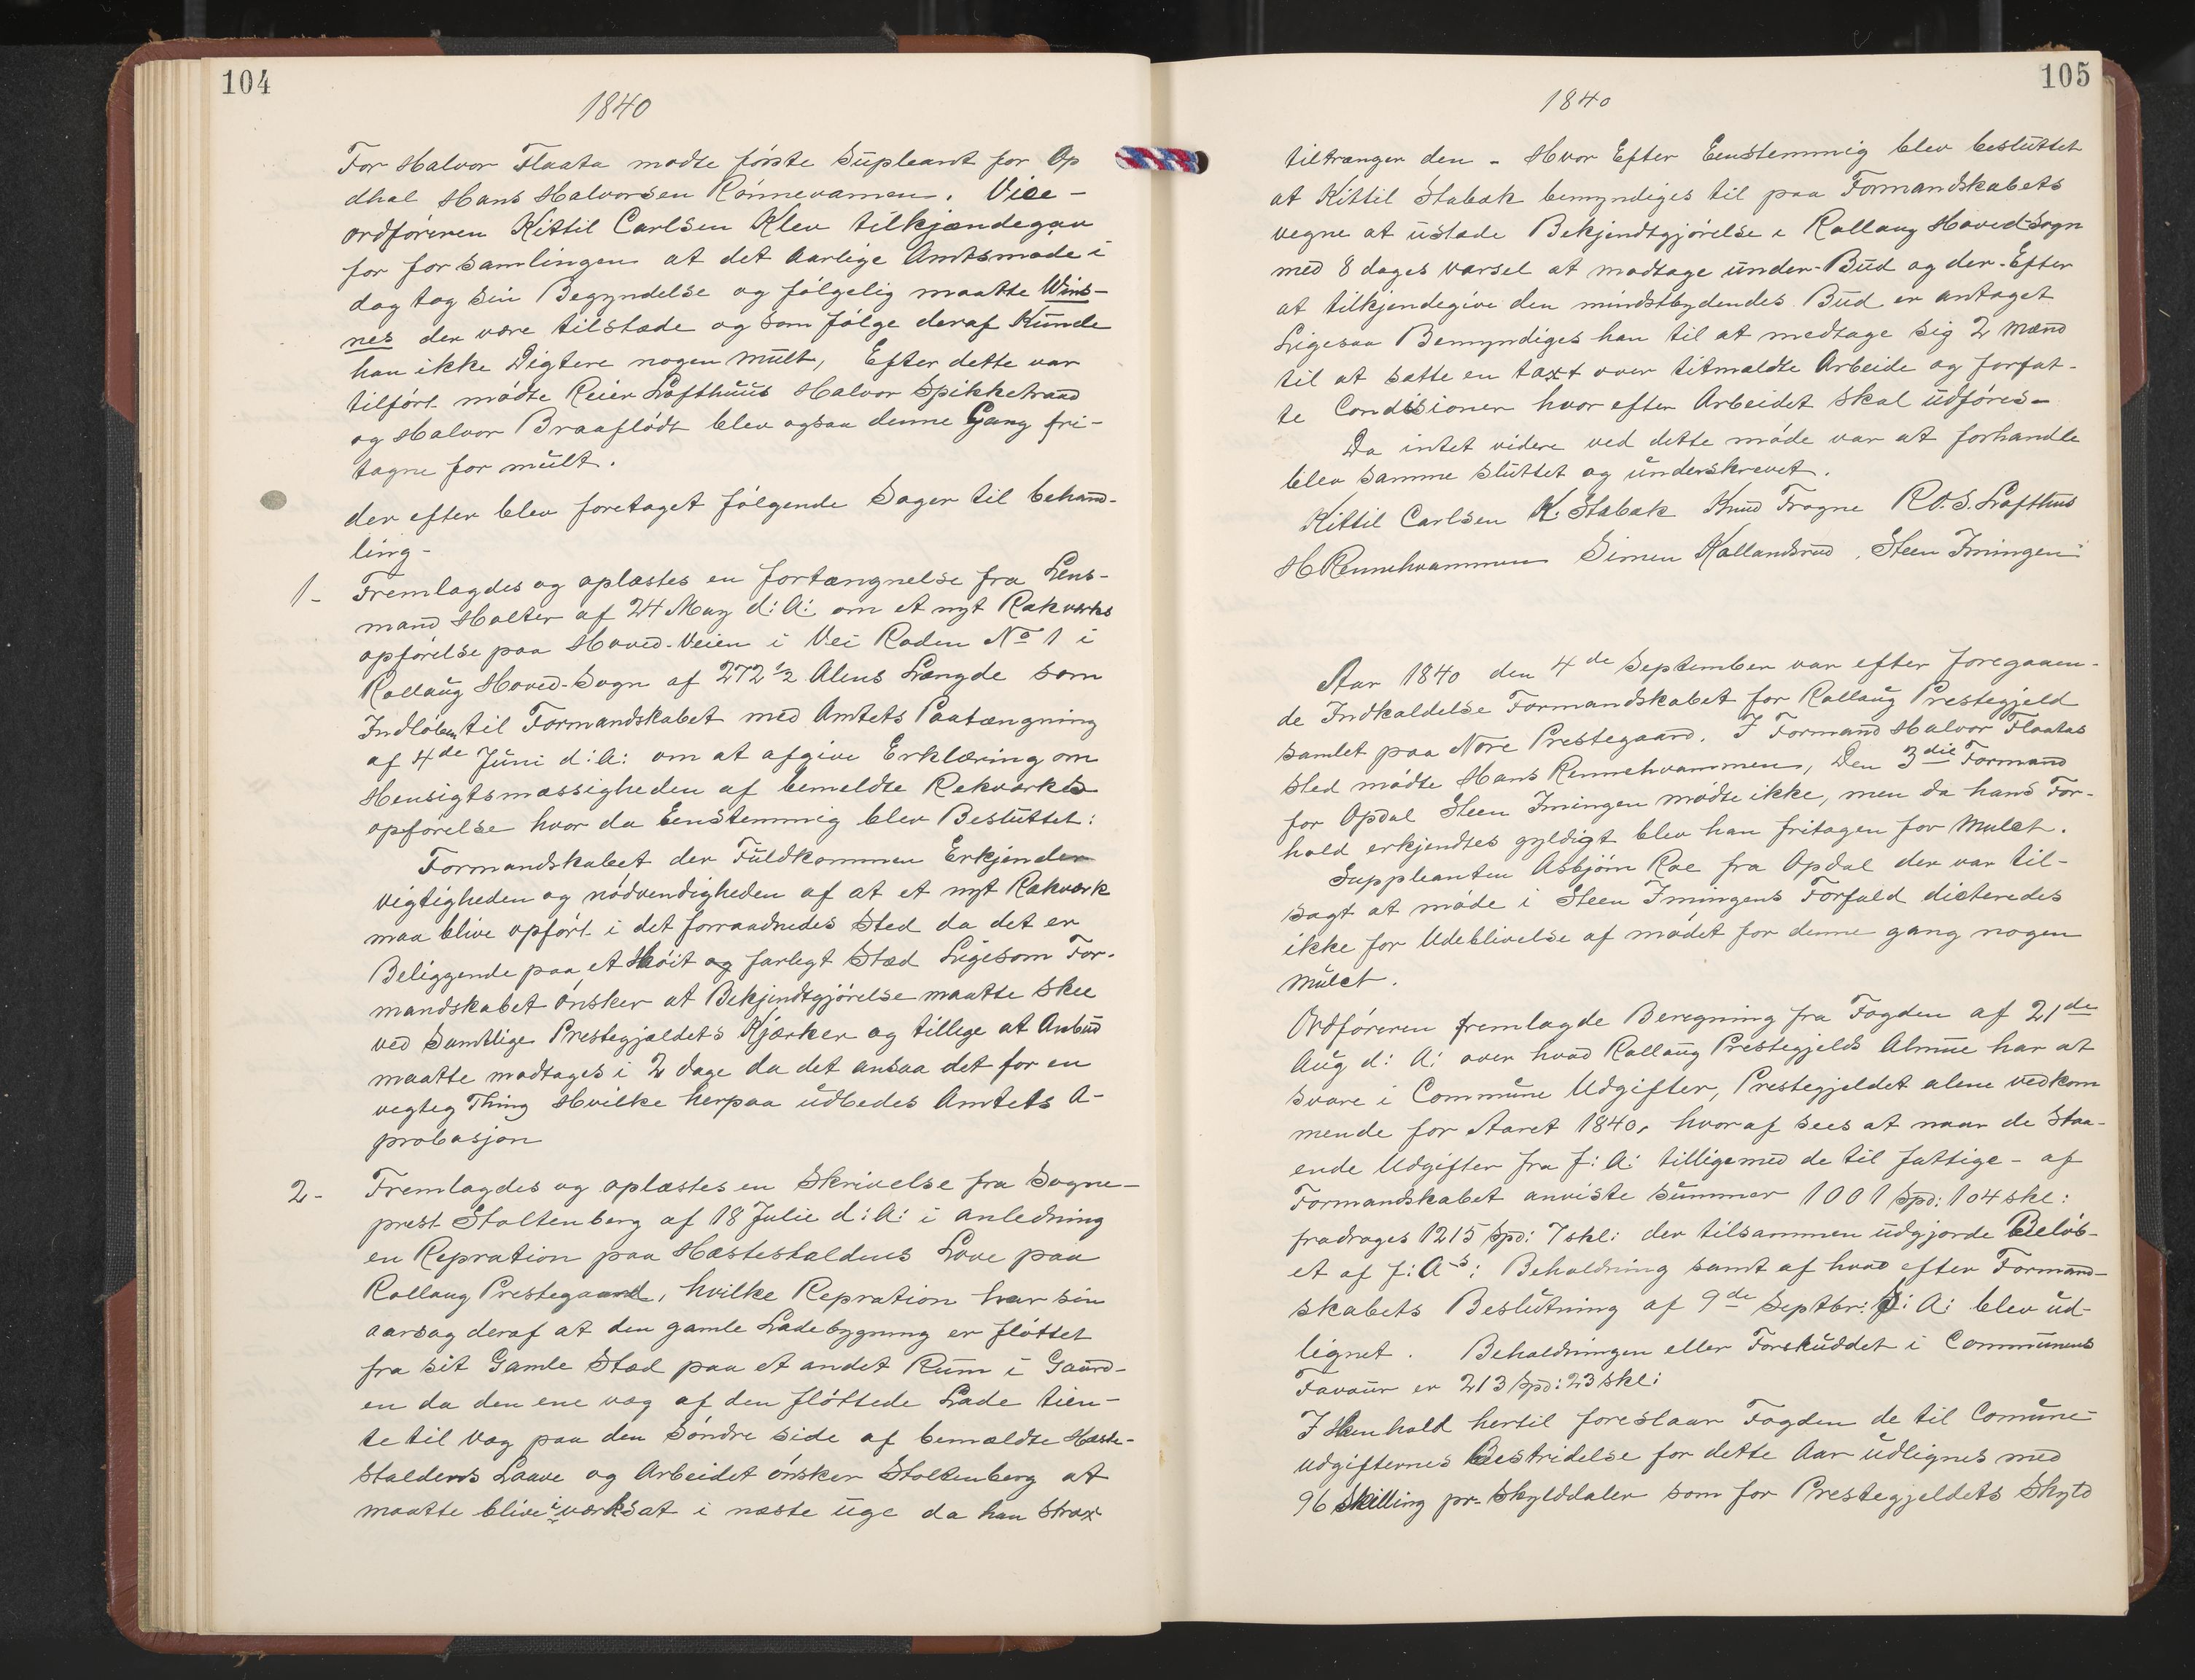 104
1840
For Halvor Flaata mødte første Supleant for Op
dhal Hans Halvorsen Rønnevamen. Vice-
ordføreren Kittil Carlsen Klev tilkjændegav
for forsamlingen at det Aarlige Amtsmøde i
dag tog sin Begyndelse og følgelig maatte Wins-
nes der være tilstæde og som følge deraf Kunde
han ikke Digtere nogen mult, Efter dette var
tilført mødte Reier Lofthuus Halvor Spikketraad
og Halvor Braaflødt blev ogsaa denne Gang fri-
tagne for mult.
der efter blev foretaget følgende Sager til behand-
ling-
1- Fremlagdes og oplæstes en fortængnelse fra Lens-
mand Holter af 24 May d: A: om et nyt Rækværks
opførelse paa Hoved-Veien i Vei Roden No 1 i
Rollaug Hoved-Sogn af 272 1/2 Alens Længde som
Indløben til Formandskabet med Amtets Paatængning
af 4de Juni d: A: om at afgive Erklæring om
Hensigtsmæssigheden af bemeldte Rekværks
opførelse hvor da Eenstemmig blev Besluttet:
Formandskabet der Fuldkommen Erkjender
vigtigheden og nødvendigheden af at et nyt Rækværk
maa blive opført i det forraadnedes Sted da det er
Beliggende paa et Høit og farligt Stæd Ligesom For-
mandskabet ønsker at Bekjendtgjørelse maatte skee
ved Samtlige Prestegjældets Kjærker og tillige at Anbud
maatte modtages i 2 dage da det ansaa det for en
vegteg Thing Hvilke herpaa udbedes Amtets A-
probasjon
2- Fremlagdes og oplæstes en Skrivelse fra Sogne-
prest Stoltenberg af 18 Julie d: A: i anledning
en Repration paa Hæstestaldens Love paa
Rollaug Prestegaard, hvilke Repration har sin
aarsag deraf at den gamle Ladebygning er fløttet
fra sit Gamle Stæd paa et andet Rum i Gaard-
en da den ene væg af den fløttede Lade tien-
te til Væg paa den Søndre side af bemældte Hæste-
Staldens Laave og Arbeidet ønsker Stoltenberg at
maatte blive iværksat i næste uge da han Strax
105
1840
tiltrænger den - Hvor Efter Eenstemmig blev besluttet
at Kittil Stabæk bemyndiges til paa Formandskabets
vegne at ustæde Bekjendtgjørelse i Rollaug Hoved-Sogn
med 8 dages varsel at modtage under-Bud og der-Efter
at tilkjendegive den mindstbydendes Bud er antaget
Ligesaa Bemyndiges han til at medtage sig 2 Mænd
til at sætte en taxt over titmældte Arbeide og forfat-
te Condisioner hvor efter Arbeidet skal udføres-
Da intet videre ved dette møde var at forhandle
blev samme sluttet og underskrevet.
Kittil Carlsen K. Stabæk Knud Fragne R.O.S. Lofthus
H Rennehvammen Simen Kallandsrud. Steen Imingen
Aar 1840 den 4de September var efter foregaaen-
de Indkaldelse Formandskabet for Rollaug Prestegjeld
samlet paa Nore Prestegaard. I Formand Halvor Flaatas
sted mødte Hans Rennehvammen, Den 3die Formand
for Opdal Steen Imingen mødte ikke, men da hans For-
hold erkjendtes gyldigt blev han fritagen for Mulct.
Suppleanten Asbjørn Roe fra Opdal der var til-
sagt at møde i Steen Imingens Forfald dicteredes
ikke for Udeblivelse af mødet for denne gang nogen
Mulct.
Ordføreren fremlagde Beregning fra Fogden af 21de
Aug d: A: over hvad Rollaug Prestegjelds Almue har at
svare i Commune Udgifter, Prestegjeldet alene vedkom
mende for Aaret 1840, hvoraf sees at naar de Staa-
ende Udgifter fra f: A: tilligemed de til fattige- af
Formandskabet anviste summer 1001 Spd: 104 skl:
fradrages 1215 Spd: 7 skl: der tilsammen udgjorde Beløb-
et af f: A-s: Beholdning samt af hvad efter Formand-
skabets Beslutning af 9de Septbr: f: A: blev ud-
lignet. Beholdningen eller Forskuddet i Communens
Favour er 213 Spd: 23 Skl:
I Henhold hertil foreslaar Fogden de til Comune-
udgifternes Bestridelse for dette Aar udlignes med
96 Skilling pr. Skylddaler som for Prestegjeldets Skyld